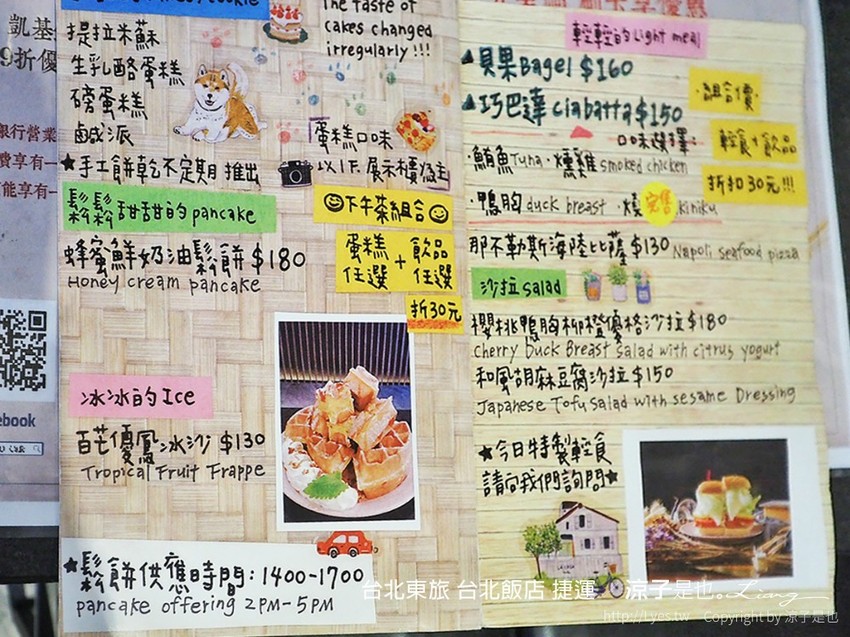 凱基
9折優
銀行營業
費享有一
可能享有一
cebook
the taste of
cakes changed
irregularly!!!
提拉米蘇
生乳酪蛋糕
磅蛋糕
鹹派
蛋糕口味
以1F.展示櫃為主
★手工餅乾不定期推出
鬆鬆甜甜的pancake
蜂蜜鮮奶油鬆餅$180
Honey cream pancake
下午茶組合
蛋糕任選+飲品任選
折30元
冰冰的Ice
百芒優鳳冰沙$130
Tropical Fruit Frappe
★鬆餅供應時間:1400-1700
pancake offering 2PM-5PM
輕輕的Light meal
▲貝果Bagel $160
▲巧巴達Ciabatta$150
·組合價·
輕食+飲品
折扣30元!!!
口味選擇:
·鮪魚Tuna·燻雞smoked chicken
·鴨胸duck breast ·燒 完售 kiniku
那不勒斯海陸比薩$130 Napoli seafood pizza
沙拉salad
櫻桃鴨胸柳橙優格沙拉$180
Cherry Duck Breast Salad with citrus yogurt
和風胡麻豆腐沙拉$150
Japanese Tofu Salad with sesame Dressing
★今日特製輕食
請向我們詢問★
台北東旅 台北飯店 捷運 涼子是也
http://Lyes.tw Copyright by 涼子是也